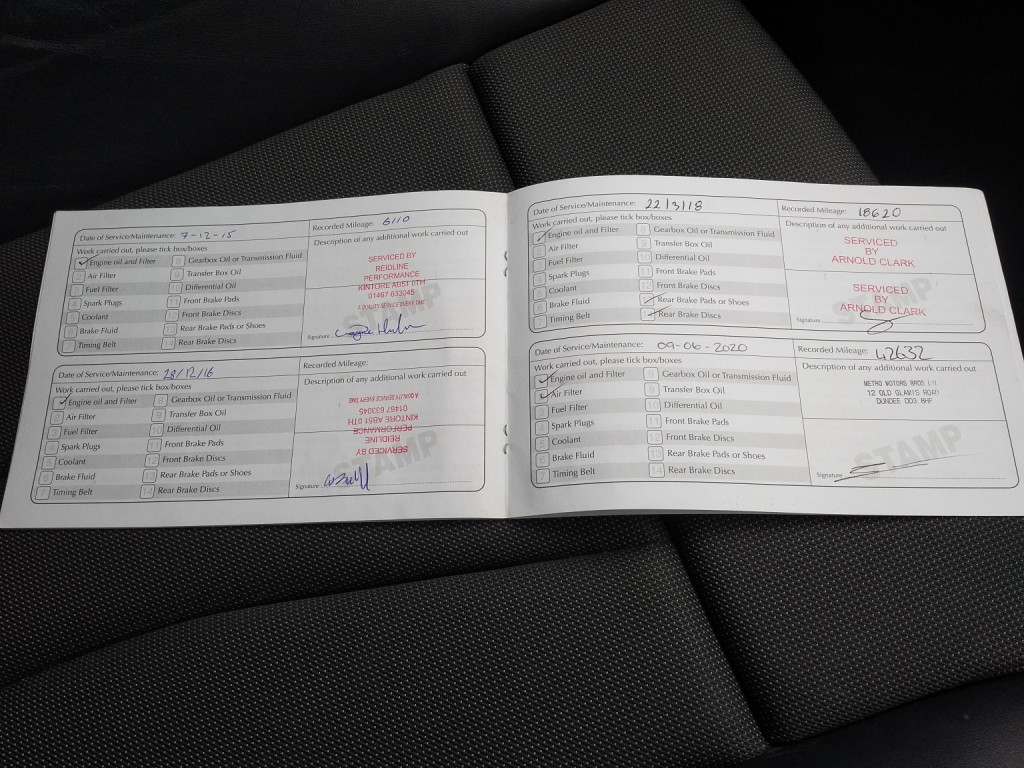 Date of Service/Maintenance: 7-12-15
Recorded Mileage: 6110
Work carried out, please tick box/boxes
Description of any additional work carried out
✓ Engine oil and Filter 8 Gearbox Oil or Transmission Fluid
2 Air Filter 9 Transfer Box Oil
3 Fuel Filter 10 Differential Oil
4 Spark Plugs 11 Front Brake Pads
5 Coolant 12 Front Brake Discs
6 Brake Fluid 13 Rear Brake Pads or Shoes
7 Timing Belt 14 Rear Brake Discs
SERVICED BY
REIDLINE
PERFORMANCE
KINTORE AB51 0TH
01467 633045
A QUALITY SERVICE EVERY TIME
STAMP
Signature
Date of Service/Maintenance: 28/12/16
Recorded Mileage:
Work carried out, please tick box/boxes
Description of any additional work carried out
✓ Engine oil and Filter 8 Gearbox Oil or Transmission Fluid
2 Air Filter 9 Transfer Box Oil
3 Fuel Filter 10 Differential Oil
4 Spark Plugs 11 Front Brake Pads
5 Coolant 12 Front Brake Discs
6 Brake Fluid 13 Rear Brake Pads or Shoes
7 Timing Belt 14 Rear Brake Discs
SERVICED BY
REIDLINE
PERFORMANCE
KINTORE AB51 0TH
01467 633045
A QUALITY SERVICE EVERY TIME
STAMP
Signature
Date of Service/Maintenance: 22/3/18
Recorded Mileage: 18620
Work carried out, please tick box/boxes
Description of any additional work carried out
✓ Engine oil and Filter 8 Gearbox Oil or Transmission Fluid
2 Air Filter 9 Transfer Box Oil
3 Fuel Filter 10 Differential Oil
4 Spark Plugs 11 Front Brake Pads
5 Coolant 12 Front Brake Discs
6 Brake Fluid ✓ Rear Brake Pads or Shoes
7 Timing Belt ✓ Rear Brake Discs
SERVICED
BY
ARNOLD CLARK
SERVICED
BY
ARNOLD CLARK
STAMP
Signature
Date of Service/Maintenance: 09-06-2020
Recorded Mileage: 42632
Work carried out, please tick box/boxes
Description of any additional work carried out
✓ Engine oil and Filter 8 Gearbox Oil or Transmission Fluid
✓ Air Filter 9 Transfer Box Oil
3 Fuel Filter 10 Differential Oil
4 Spark Plugs 11 Front Brake Pads
5 Coolant 12 Front Brake Discs
6 Brake Fluid 13 Rear Brake Pads or Shoes
7 Timing Belt 14 Rear Brake Discs
METRO MOTORS BROS
12 OLD GLAMIS ROAD
DUNDEE DD3 8HP
STAMP
Signature